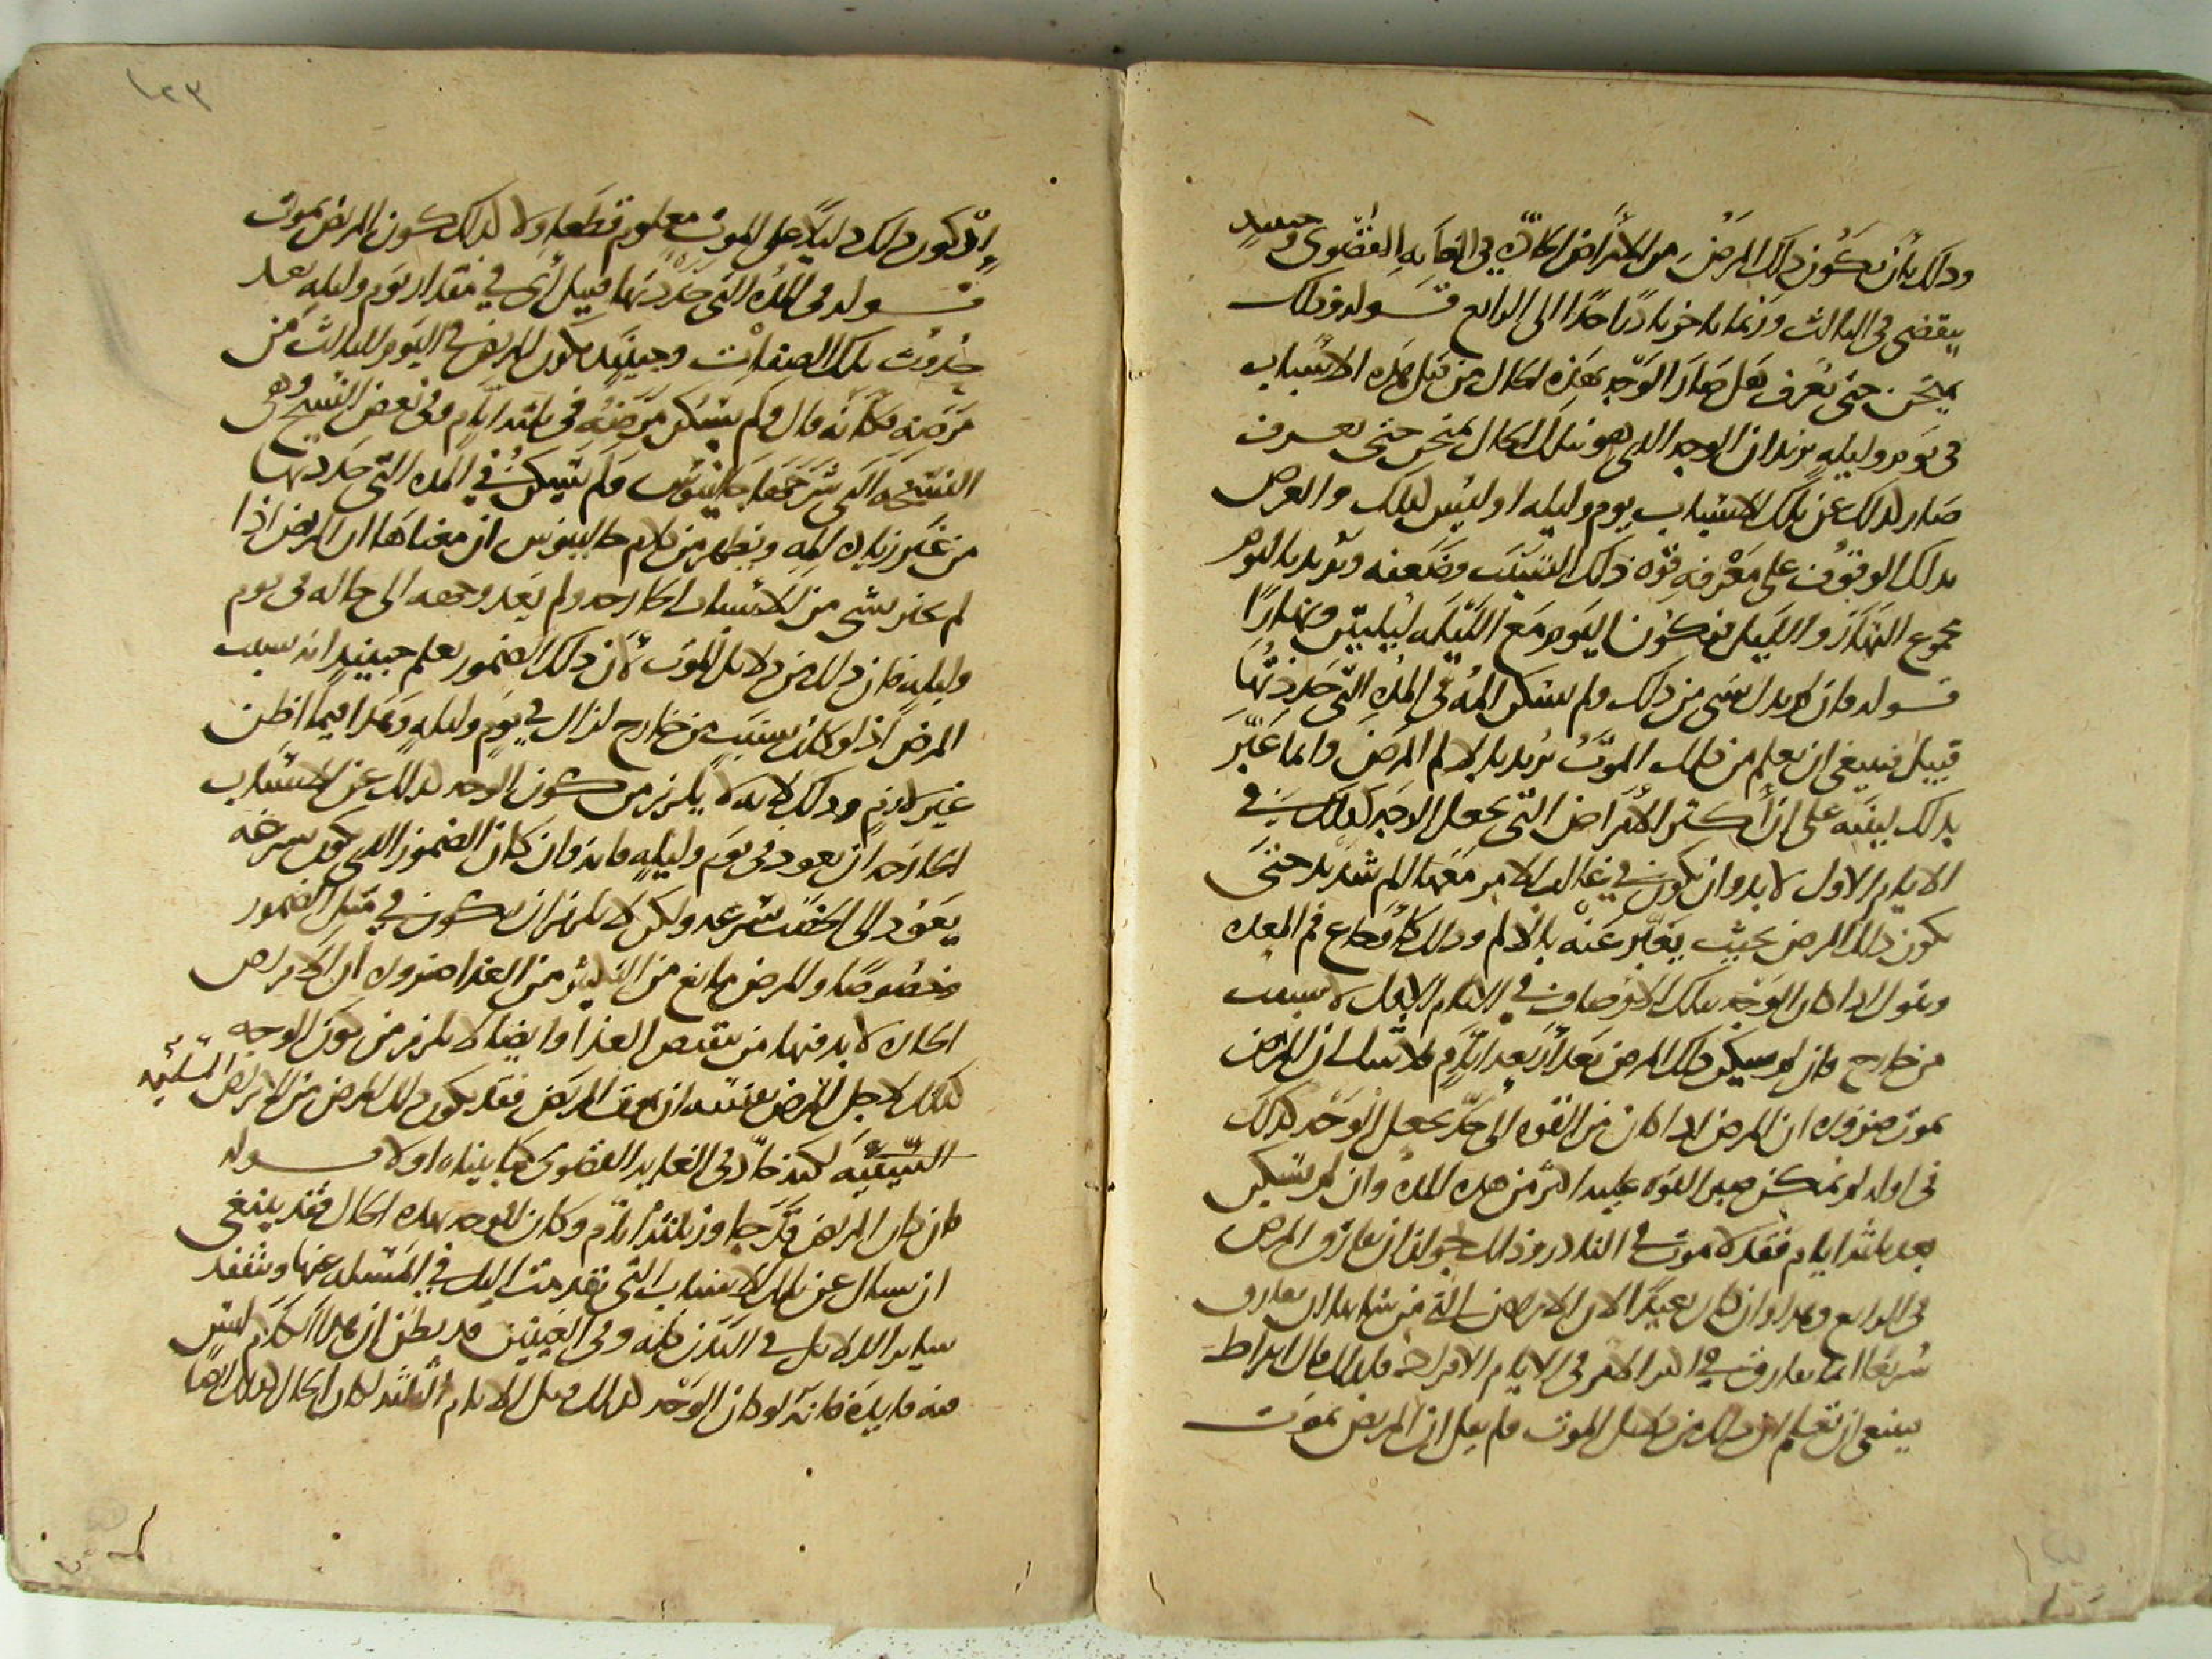 وذلك بأن يكون ذلك المرض من الامراض الحادة في الغاية القصوى وحينيذ
ينقضي في الثالث وربما تاخر نادرا جدا الى الرابع قوله وذلك
يمتحن حتى يعرف هل صار الوجه بهذه الحال من قبل هذه الاسباب
في يوم وليلة يريد ان الوجه الذي هو بتلك الحال يمتحن حتى يعرف
صار لذلك عن تلك الاسباب بيوم وليلة او ليس كذلك والغرض
بذلك الوقوف على معرفة قوة ذلك السبب وضعفه ويريد باليوم
مجموع النهار والليل فيكون اليوم مع الليلة ليلتين ونهارا
قوله فان لم يدل شي من ذلك ولم يسكن المه في المدة التي حددتها
قبيل فينبغي ان يعلم من ذلك الموت يريد بالالم المرض وانما عبر
بذلك لينبه على ان اكثر الامراض التي يجعل الوجه كذلك في
الايام الاول لابد وان يكون في غالب الامر معها الم شديد حتى
يكون ذلك المرض بحيث يعبر عنه بالالم وذلك كاوجاع فم المعدة
ونقول اذا كان الوجه بتلك الاوصاف في الايام الاول لا بسبب
من خارج فان لم يسكن ذلك المرض بعد اربعة ايام فلا شك ان المريض
يموت ضرورة ان المرض اذا كان من القوة الى حد يجعل الوجه كذلك
في اوله لم يمكن صبر القوة عليه اكثر من هذه المدة وان لم يسكن
بعد ثلثة ايام فقد لا يموت في النادر وذلك لجواز ان يفارق المرض
في الرابع وهذا وان كان بعيدا لان الامراض التي من شانها ان تفارق
سريعا انما تفارق في اكثر الامر في الايام الافراد فلذلك قال ابقراط
ينبغي ان تعلم ان ذلك من دلايل الموت ولم يقل ان المريض يموت
اذ كون ذلك دليلا على الموت معلوم قطعا ولا كذلك كون المريض يموت
قوله في المدة التي حددتها قبيل أي في مقدار يوم وليلة بعد
حدوث تلك الصفات وحينيذ يكون المريض في اليوم الثالث من
مرضه فكانه قال ولم يسكن مرضه في ثلثة ايام وفي بعض النسخ وهي
النسخة التي شرحها جالينوس ولم يسكن في المدة التي حددتها
من غير زيادة المه ويظهر من كلام جالينوس ان معناها ان المريض اذا
لم يخبر بشي من الاسباب الخارجة ولم يعد وجهه الى حاله في يوم
وليلة فان ذلك من دلايل الموت لأن ذلك الضمور يعلم حينيذ انه بسبب
المرض اذ لو كان بسبب من خارج لزال في يوم وليلة وهذا فيما اظن
غير لازم وذلك لانه لا يلزم من كون الوجه كذلك عن الاسباب
الخارجة ان يعود في يوم وليلة فانه وان كان الضمور الذي يكون بسرعة
يعود الى الخصب بسرعة ولكن لا يلزم ان يكون في مثل الضمور
وخصوصا والمرض مانع من التكثير من الغذا ضرورة ان الامراض
الحادة لا بد فيها من نقص الغذا وايضا لا يلزم من كون الوجه
كذلك لاجل المرض نفسه ان يموت المريض فقد يكون ذلك المرض من الامراض السليمة
السببية لكنه حاد في الغاية القصوى كما بيناه اولا قوله
فان كان المريض قد جاوز ثلثة ايام وكان الوجه بهذه الحال فقد ينبغي
ان تسال عن تلك الاسباب التي تقدمت اليك في المسئلة عنها وتتفقد
ساير الدلايل في البدن كله وفي العينين قد يظن ان هذا الكلام ليس
فيه فايدة فانه لو كان الوجه كذلك قبل الايام الثلثة لكان الحال كذلك ايضا